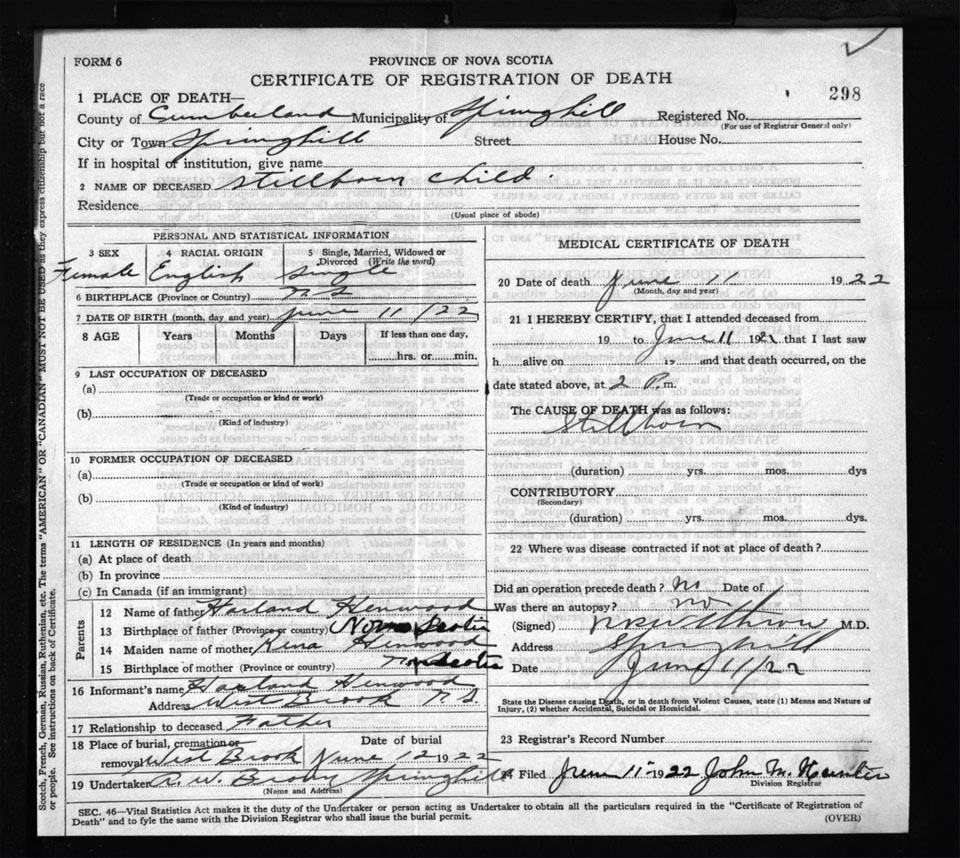 FORM 6
PROVINCE OF NOVA SCOTIA
CERTIFICATE OF REGISTRATION OF DEATH
298
1 PLACE OF DEATH—
County of Cumberland Municipality of Springhill Registered No.
(For use of Registrar General only)
City or Town Springhill Street House No.
If in hospital or institution, give name
2 NAME OF DECEASED Stillborn Child.
Residence
(Usual place of abode)
PERSONAL AND STATISTICAL INFORMATION
3 SEX 4 RACIAL ORIGIN 5 Single, Married, Widowed or Divorced (Write the word)
Female English Single
6 BIRTHPLACE (Province or Country) N S
7 DATE OF BIRTH (month, day and year) June 11/22
8 AGE Years Months Days If less than one day,
hrs. or min.
9 LAST OCCUPATION OF DECEASED
(a)
(Trade or occupation or kind or work)
(b)
(Kind of industry)
10 FORMER OCCUPATION OF DECEASED
(a)
(Trade or occupation or kind or work)
(b)
(Kind of industry)
11 LENGTH OF RESIDENCE (In years and months)
(a) At place of death
(b) In province
(c) In Canada (if an immigrant)
Parents
12 Name of father Harland Henwood
13 Birthplace of father (Province or country) Nova Scotia
14 Maiden name of mother Henwood
15 Birthplace of mother (Province or country) Scotia
16 Informant's name Harland Henwood
Address West Brook N.S.
17 Relationship to deceased Father
18 Place of burial, cremation or Date of burial
removal West Brook June 12 1922
19 Undertaker R. W. Brown Springhill
(Name and Address)
MEDICAL CERTIFICATE OF DEATH
20 Date of death June 11 1922
(Month, day and year)
21 I HEREBY CERTIFY, that I attended deceased from
19 to June 11 1922 that I last saw
h alive on 19 and that death occurred, on the
date stated above, at 2 P.m.
The CAUSE OF DEATH was as follows:
Stillborn
(duration) yrs. mos. dys
CONTRIBUTORY
(Secondary)
(duration) yrs. mos. dys.
22 Where was disease contracted if not at place of death?
Did an operation precede death? No Date of
Was there an autopsy? no
(Signed) M.D.
Address Springhill
Date June 11/22
State the Disease causing Death, or in death from Violent Causes, state (1) Means and Nature of
Injury, (2) whether Accidental, Suicidal or Homicidal.
23 Registrar's Record Number
24 Filed June 11 1922 John M.
Division Registrar
SEC. 46—Vital Statistics Act makes it the duty of the Undertaker or person acting as Undertaker to obtain all the particulars required in the "Certificate of Registration of
Death" and to fyle the same with the Division Registrar who shall issue the burial permit.
(OVER)
Scotch, French, German, Russian, Ruthenian, etc. The terms "AMERICAN" OR "CANADIAN" MUST NOT BE USED as they express citizenship but not a race
or people. See instructions on back of Certificate.